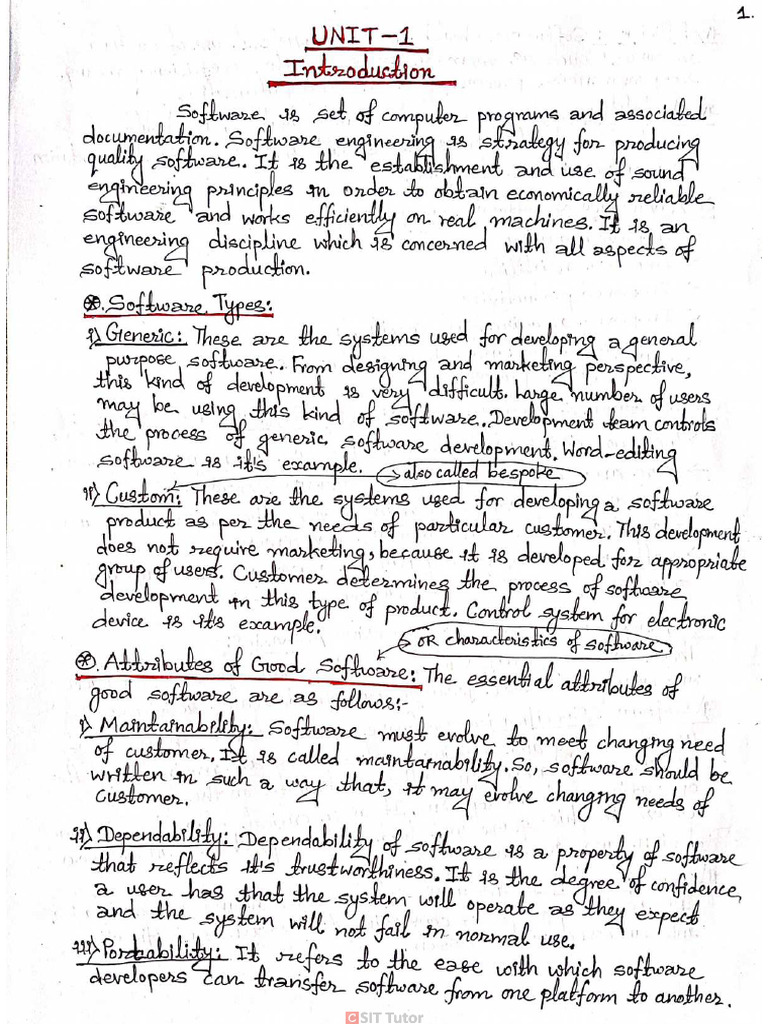 1.
UNIT-1
Introduction
Software is set of computer programs and associated
documentation. Software engineering is strategy for producing
quality software. It is the establishment and use of sound
engineering principles in order to obtain economically reliable
software and works efficiently on real machines. It is an
engineering discipline which is concerned with all aspects of
software production.
⊛. Software Types:
i) Generic: These are the systems used for developing a general
purpose software. From designing and marketing perspective,
this kind of development is very difficult. Large number of users
may be using this kind of software. Development team controls
the process of generic software development. Word-editing
software is it's example.
→ also called bespoke
ii) Custom: These are the systems used for developing a software
product as per the needs of particular customer. This development
does not require marketing, because it is developed for appropriate
group of users. Customer determines the process of software
development in this type of product. Control system for electronic
device is it's example.
→ OR characteristics of software.
⊛. Attributes of Good Software: The essential attributes of
good software are as follows:-
i) Maintainability: Software must evolve to meet changing need
of customer. It is called maintainability. So, software should be
written in such a way that, it may evolve changing needs of
customer.
ii) Dependability: Dependability of software is a property of software
that reflects it's trustworthiness. It is the degree of confidence
a user has that the system will operate as they expect
and the system will not fail in normal use.
iii) Portability: It refers to the ease with which software
developers can transfer software from one platform to another.
CSIT Tutor